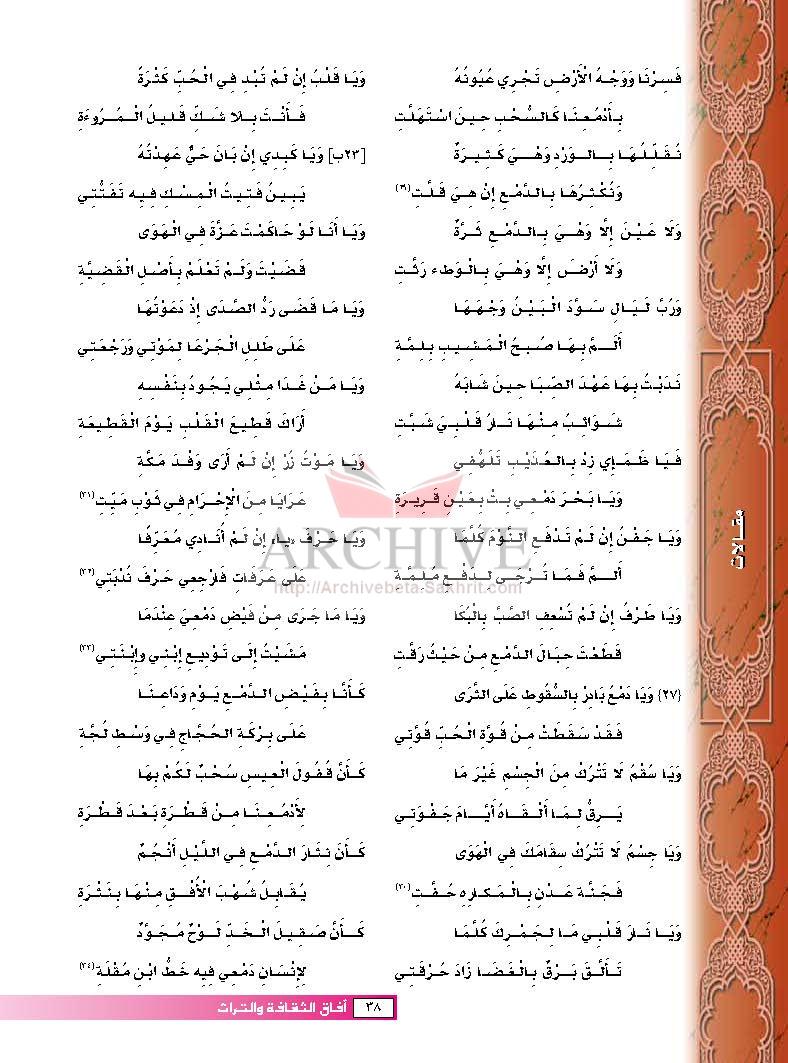 فَسِرْنَا وَوَجْهُ الْأَرْضِ تَجْرِي عُيُونُهُ
بِأَدْمُعِنَا كَالسُّحْبِ حِينَ اسْتَهَلَّتِ
نُقَلِّلُهَا بِالْوَرْدِ وَهْيَ كَثِيرَةٌ
وَنُكْثِرُهَا بِالدَّمْعِ إِنْ هِيَ قَلَّتِ(٢٩)
وَلَا عَيْنَ إِلَّا وَهْيَ بِالدَّمْعِ ثَرَّةٌ
وَلَا أَرْضَ إِلَّا وَهْيَ بِالْوَطءِ رَثَّتِ
وَرُبَّ لَيَالٍ سَوَّدَ الْبَيْنُ وَجْهَهَا
أَلَمَّ بِهَا صُبحُ الْمَشِيبِ بِلِمَّةِ
نَدَبْتُ بِهَا عَهْدَ الصِّبَا حِينَ شَابَهُ
شَوَائِبُ مِنْهَا نَارُ قَلْبِيَ شَبَّتِ
فَيَا ظَمَإِي زِدْ بِالْعُذَيْبِ تَلَهُّفِي
وَيَا بَحْرَ دَمْعِي بِتْ بِعَيْنٍ قَرِيرَةِ
وَيَا جَفْنُ إِنْ لَمْ تَدْفَعِ النَّوْمَ كُلَّمَا
أَلَمَّ فَمَا تُرْجَى لِدَفْعِ مُلِمَّةِ
وَيَا طَرْفُ إِنْ لَمْ تُسْعِفِ الصَّبَّ بِالْبُكَا
قَطَعْتَ حِبَالَ الدَّمْعِ مِنْ حَيْثُ رَقَّتِ
{٢٧} وَيَا دَمْعُ بَادِرْ بِالسُّقُوطِ عَلَى الثَّرَى
فَقَدْ سَقَطَتْ مِنْ قُوَّةِ الْحُبِّ قُوَّتِي
وَيَا سُقْمُ لَا تَتْرُكْ مِنَ الْجِسْمِ غَيْرَ مَا
يَرِقُّ لِمَا أَلْقَاهُ أَيَّامَ جَفْوَتِي
وَيَا جِسْمُ لَا تَتْرُكْ سِقَامَكَ فِي الْهَوَى
فَجَنَّةُ عَدْنٍ بِالْمَكَارِهِ حُفَّتِ(٣٠)
وَيَا نَارَ قَلْبِي مَا لِجَمْرِكِ كُلَّمَا
تَأَلَّقَ بَرْقٌ بِالْغَضَا زَادَ حُرْقَتِي
وَيَا قَلْبُ إِنْ لَمْ تُبْدِ فِي الْحُبِّ كَثْرَةً
فَأَنْتَ بِلَا شَكٍّ قَلِيلُ الْمُرُوءَةِ
[٢٣ب] وَيَا كَبِدِي إِنْ بَانَ حَيٌّ عَهِدْتُهُ
يَبِينُ فَتِيتُ الْمِسْكِ فِيهِ تَفَتُّتِي
وَيَا أَنَا لَوْ حَاكَمْتَ عَزَّةَ فِي الْهَوَى
قَضَيْتَ وَلَمْ تَعْلَمْ بِأَصْلِ الْقَضِيَّةِ
وَيَا مَا قَضَى رَدُّ الصَّدَى إِذْ دَعَوْتُهَا
عَلَى طَلَلِ الْجَرْعَا لِمَوْتِي وَرَجْعَتِي
وَيَا مَنْ غَدَا مِثْلِي يَجُودُ بِنَفْسِهِ
أَرَاكَ قَطِيعَ الْقَلْبِ يَوْمَ الْقَطِيعَةِ
وَيَا مَوْتُ زُرْ إِنْ لَمْ أَرَى وَفْدَ مَكَّةٍ
عَرَايَا مِنَ الْإِحْرَامِ فِي ثَوْبِ مَيِّتِ(٣١)
وَيَا حَرْفَ «يا» إِنْ لَمْ أُنَادِي مُعَرِّفًا
عَلَى عَرَفَاتٍ فَارْجِعِي حَرْفَ نُدْبَتِي(٣٢)
وَيَا مَا جَرَى مِنْ فَيْضِ دَمْعِيَ عِنْدَمَا
مَشَيْتُ إِلَى تَوْدِيعِ إِبْنِي وإِبْنَتِي(٣٣)
كَأَنَّا بِفَيْضِ الدَّمْعِ يَوْمَ وَدَاعِنَا
عَلَى بِرْكَةِ الْحُجَّاجِ فِي وَسْطِ لُجَّةِ
كَأَنَّ قُفُولَ الْعِيسِ سُحْبٌ لَكُمْ بِهَا
لِأَدْمُعِنَا مِنْ قَطْرَةٍ بَعْدَ قَطْرَةِ
كَأَنَّ نِثَارَ الدَّمْعِ فِي اللَّيْلِ أَنْجُمٌ
يُقَابِلُ شُهْبَ الْأُفْقِ مِنْهَا بِنَثْرَةِ
كَأَنَّ صَقِيلَ الْخَدِّ لَوْحٌ مُجَوَّدٌ
لِإِنْسَانِ دَمْعِي فِيهِ خَطُّ ابْنِ مُقْلَةِ(٣٤)
مقالات
ARCHIVE
http://Archivebeta.Sakhrit.com
٣٨ آفاق الثقافة والتراث